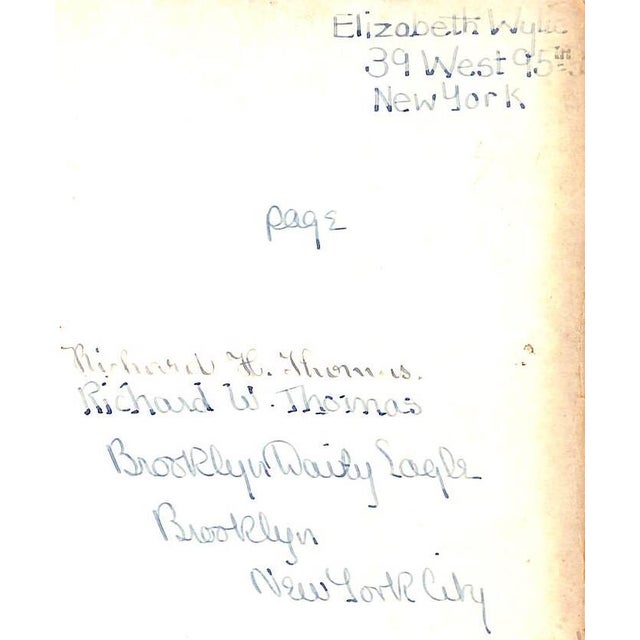 Elizabeth Wylie
39 West 95TH
New York
page
Richard H. Thomas.
Richard W. Thomas
Brooklyn Daily Eagle
Brooklyn
New York City